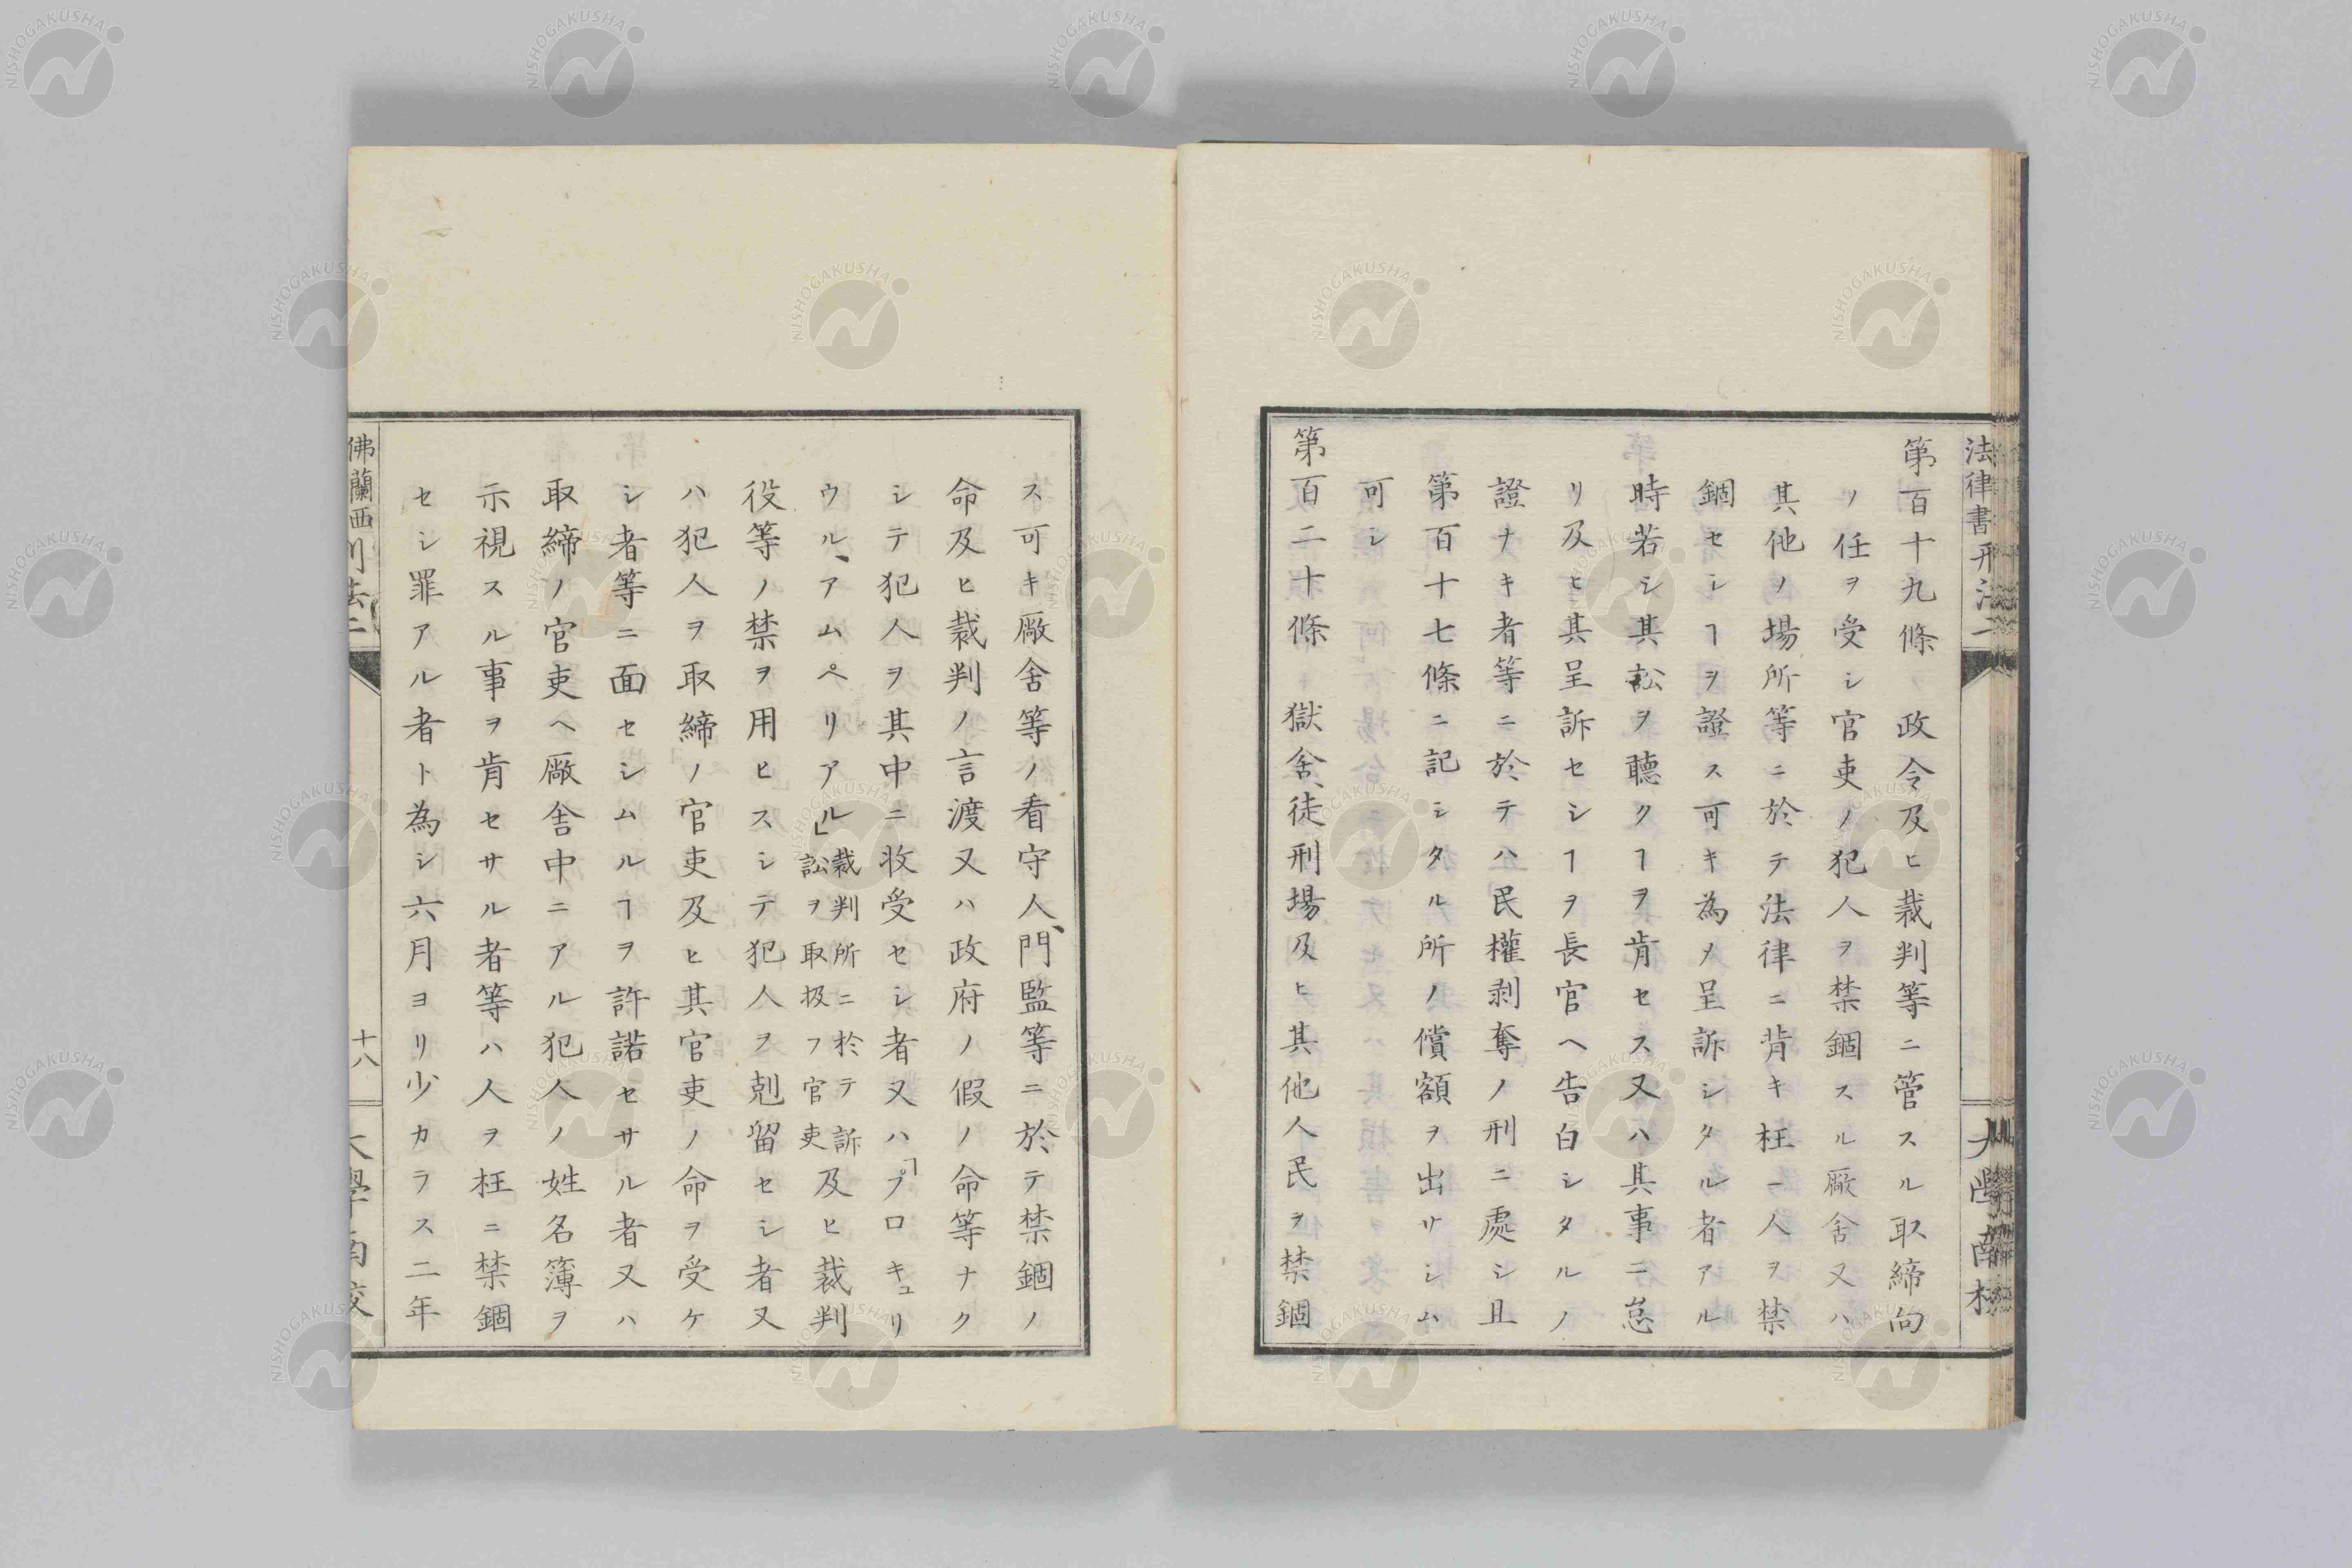 第百十九條　政令及ヒ裁判等ニ管スル取締向
ノ任ヲ受シ官吏ノ犯人ヲ禁錮スル厰舍又ハ
其他ノ場所等ニ於テ法律ニ背キ枉ーノ人ヲ禁
錮セシヿヲ證ス可キ為メ呈訴シタル者アル
時若シ其訟ヲ聽クヿヲ肯セス又ハ其事ニ怠
リ及ヒ其呈訴セシヿヲ長官ヘ告白シタルノ
證ナキ者等ニ於テハ民權剥奪ノ刑ニ處シ且
第百十七條ニ記シタル所ノ償額ヲ出サシム
可シ
第百二十條　獄舍、徒刑場及ヒ其他人民ヲ禁錮
ス可キ厰舍等ノ看守人、門監等ニ於テ禁錮ノ
命及ヒ裁判ノ言渡又ハ政府ノ假ノ命等ナク
シテ犯人ヲ其中ニ收受セシ者又ハ「プロキュリ
ウル、アムペリアル」裁判所ニ於テ訴訟ヲ取扱フ官吏及ヒ裁判
役等ノ禁ヲ用ヒスシテ犯人ヲ剋留セシ者又
ハ犯人ヲ取締ノ官吏及ヒ其官吏ノ命ヲ受ケ
シ者等ニ面セシムルヿヲ許諾セサル者又ハ
取締ノ官吏ヘ厰舍中ニアル犯人ノ姓名簿ヲ
示視スル事ヲ肯セサル者等ハ人ヲ枉ニ禁錮
セシ罪アル者ト為シ六月ヨリ少カラス二年
法律書刑法二
大學南校
佛蘭西刑法二
十八
大學南校
NISHOGAKUSHA